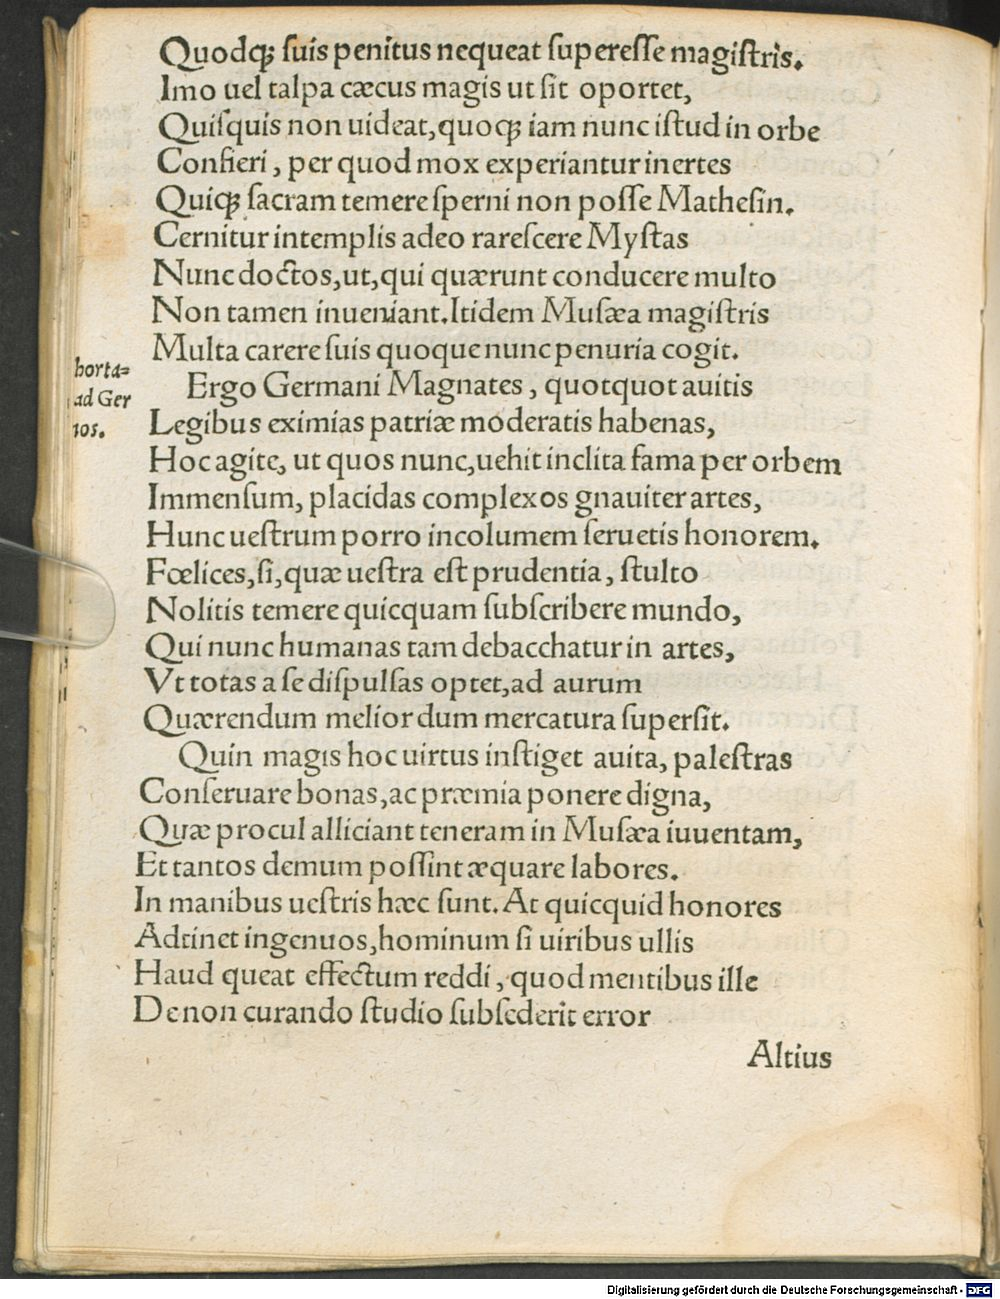 Quodqꝫ ſuis penitus nequeat ſupereſſe magiſtris.
Imo uel talpa cæcus magis ut ſit oportet,
Quiſquis non uideat,quoqꝫ iam nunc iſtud in orbe
Confieri, per quod mox experiantur inertes
Quiqꝫ ſacram temere ſperni non poſſe Matheſin.
Cernitur in templis adeo rareſcere Myſtas
Nunc doctos,ut,qui quærunt conducere multo
Non tamen inueniant.Itidem Muſæa magiſtris
Multa carere ſuis quoque nunc penuria cogit.
horta=
ad Ger
nos.
Ergo Germani Magnates, quotquot auitis
Legibus eximias patriæ moderatis habenas,
Hoc agite, ut quos nunc,uehit inclita fama per orbem
Immenſum, placidas complexos gnauiter artes,
Hunc ueſtrum porro incolumem ſeruetis honorem.
Fœlices,ſi,quæ ueſtra eſt prudentia, ſtulto
Nolitis temere quicquam ſubſcribere mundo,
Qui nunc humanas tam debacchatur in artes,
Vt totas a ſe diſpulſas optet,ad aurum
Quærendum melior dum mercatura ſuperſit.
Quin magis hoc uirtus inſtiget auita, paleſtras
Conſeruare bonas,ac præmia ponere digna,
Quæ procul alliciant teneram in Muſæa iuuentam,
Et tantos demum poſſint æquare labores.
In manibus ueſtris hæc ſunt.At quicquid honores
Adtinet ingenuos,hominum ſi uiribus ullis
Haud queat effectum reddi, quod mentibus ille
De non curando ſtudio ſubſederit error
Altius
Digitalisierung gefördert durch die Deutsche Forschungsgemeinschaft - DFG